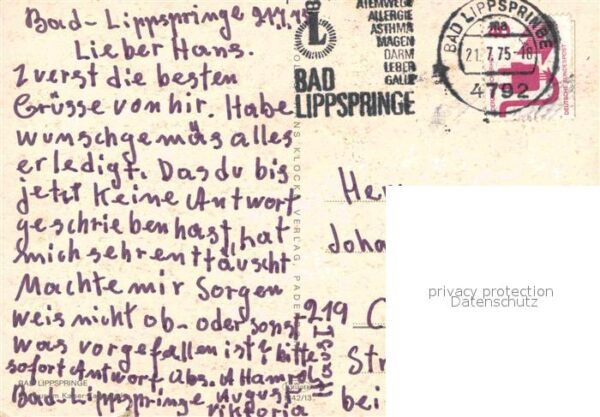 Bad-Lippspringe 21.7.75
Lieber Hans.
Zuerst die besten
Grüsse von hir. Habe
wunschgemäs alles
erledigt. Das du bis
jetzt Keine Antwort
geschrieben hast, hat
mich sehr enttäuscht
Machte mir Sorgen
weis nicht ob- oder sonst
was vorgefallen ist; bitte
sofort Antwort Abs.
Bad-Lippspringe August
Viktoria
BAD LIPPSPRINGE
ATEMWEGE
ALLERGIE
ASTHMA
MAGEN
DARM
LEBER
GALLE
BAD
LIPPSPRINGE
BAD LIPPSPRINGE
21.7.75-18
4792
DEUTSCHE BUNDESPOST
KLOCKE VERLAG, PADE
Joha
219 C
Str
bei
privacy protection
Datenschutz